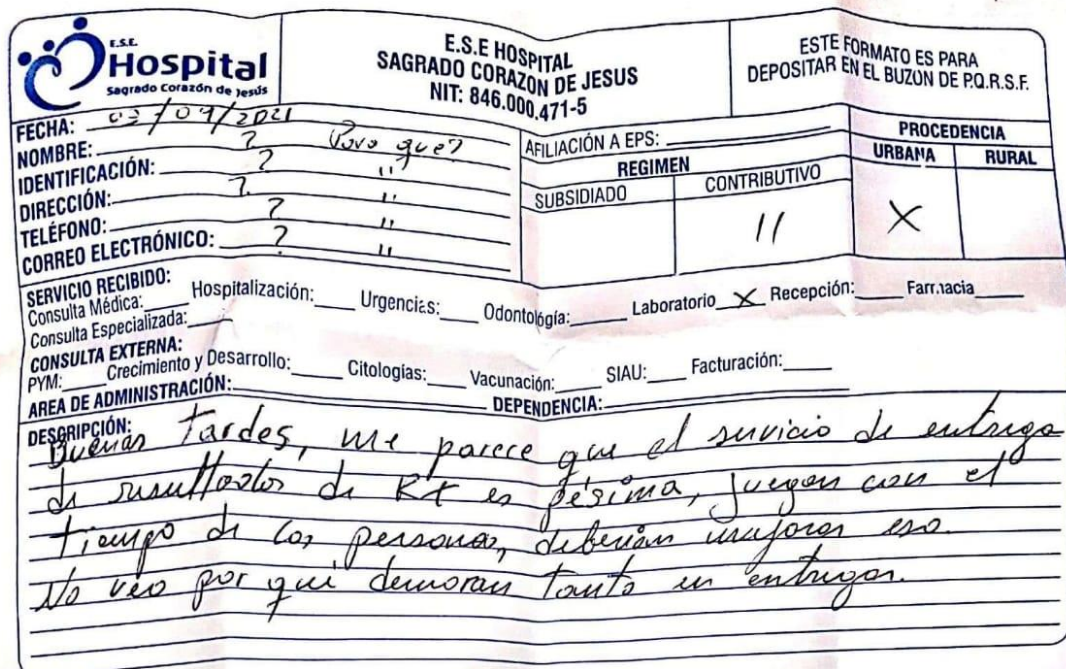 E.S.E.
Hospital
Sagrado Corazón de Jesús
E.S.E HOSPITAL
SAGRADO CORAZON DE JESUS
NIT: 846.000.471-5
ESTE FORMATO ES PARA
DEPOSITAR EN EL BUZON DE P.Q.R.S.F.
FECHA: 03/09/2021
NOMBRE: ? Para que?
IDENTIFICACIÓN: ? "
DIRECCIÓN: ? "
TELÉFONO: ? "
CORREO ELECTRÓNICO: ? "
AFILIACIÓN A EPS:
REGIMEN
SUBSIDIADO CONTRIBUTIVO
//
PROCEDENCIA
URBANA RURAL
X
SERVICIO RECIBIDO:
Consulta Médica: Hospitalización: Urgencias: Odontología: Laboratorio X Recepción: Farmacia
Consulta Especializada:
CONSULTA EXTERNA:
PYM: Crecimiento y Desarrollo: Citologías: Vacunación: SIAU: Facturación:
AREA DE ADMINISTRACIÓN: DEPENDENCIA:
DESCRIPCIÓN:
Buenas Tardes, me parece que el servicio de entrega
de resultados de RX es pésima, juegan con el
tiempo de las personas, deberían mejorar eso.
No veo por qué demoran tanto en entregar.